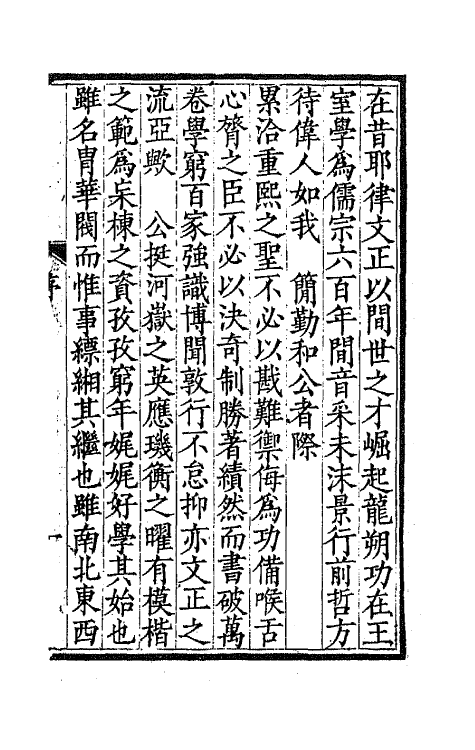 在昔耶律文正以間世之才崛起龍朔功在王
室學為儒宗六百年間音采未沫景行前哲方
待偉人如我　簡勤和公者際
累洽重熙之聖不必以戡難禦侮為功備喉舌
心膂之臣不必以決奇制勝著績然而書破萬
卷學窮百家強識博聞敦行不怠抑亦文正之
流亞歟　公挺河嶽之英應璣衡之曜有模楷
之範為杗棟之資孜孜窮年娓娓好學其始也
雖名胄華閥而惟事縹緗其繼也雖南北東西